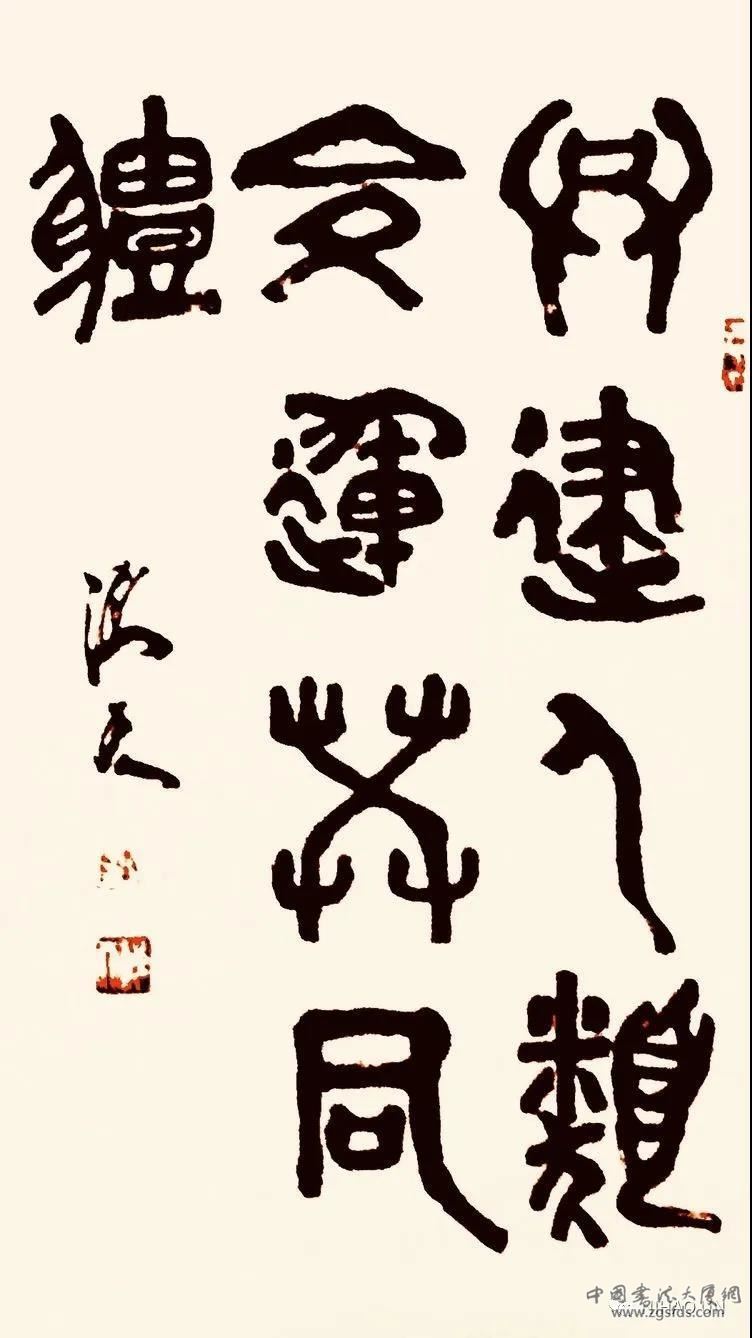 共建人類
命運共同
體
中國書法大廈網
www.zgsfds.com